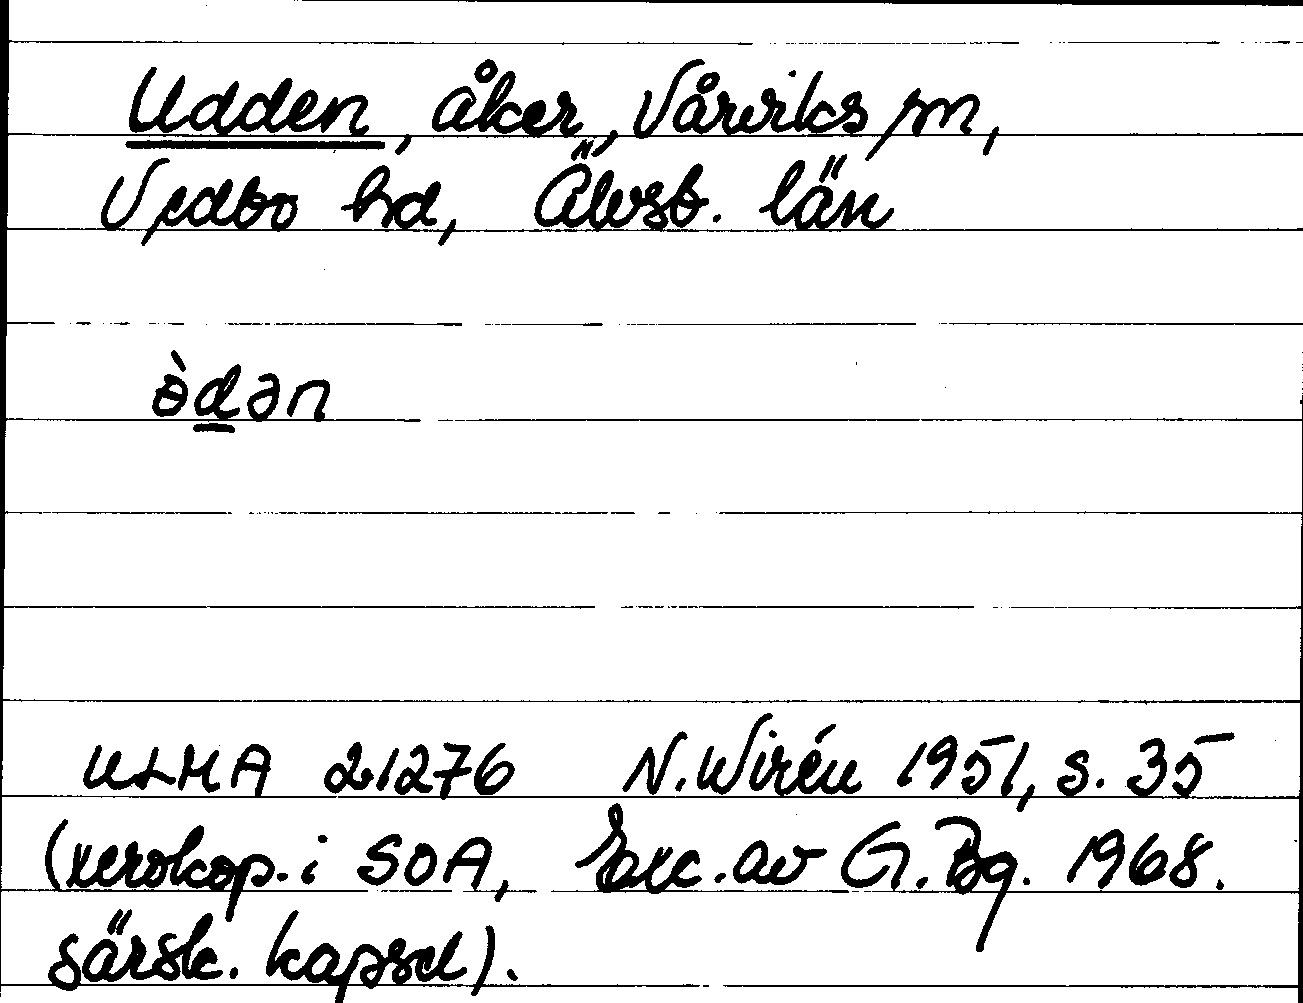 Udden, åker, Vårviks sn,
Vedbo hd, Älvsb. län
ɵ̀dən
ULMA 21276 N. Wirén 1951, s. 35
(xerokop. i SOA, Exc. av G. Bg. 1968.
särsk. kapsel).